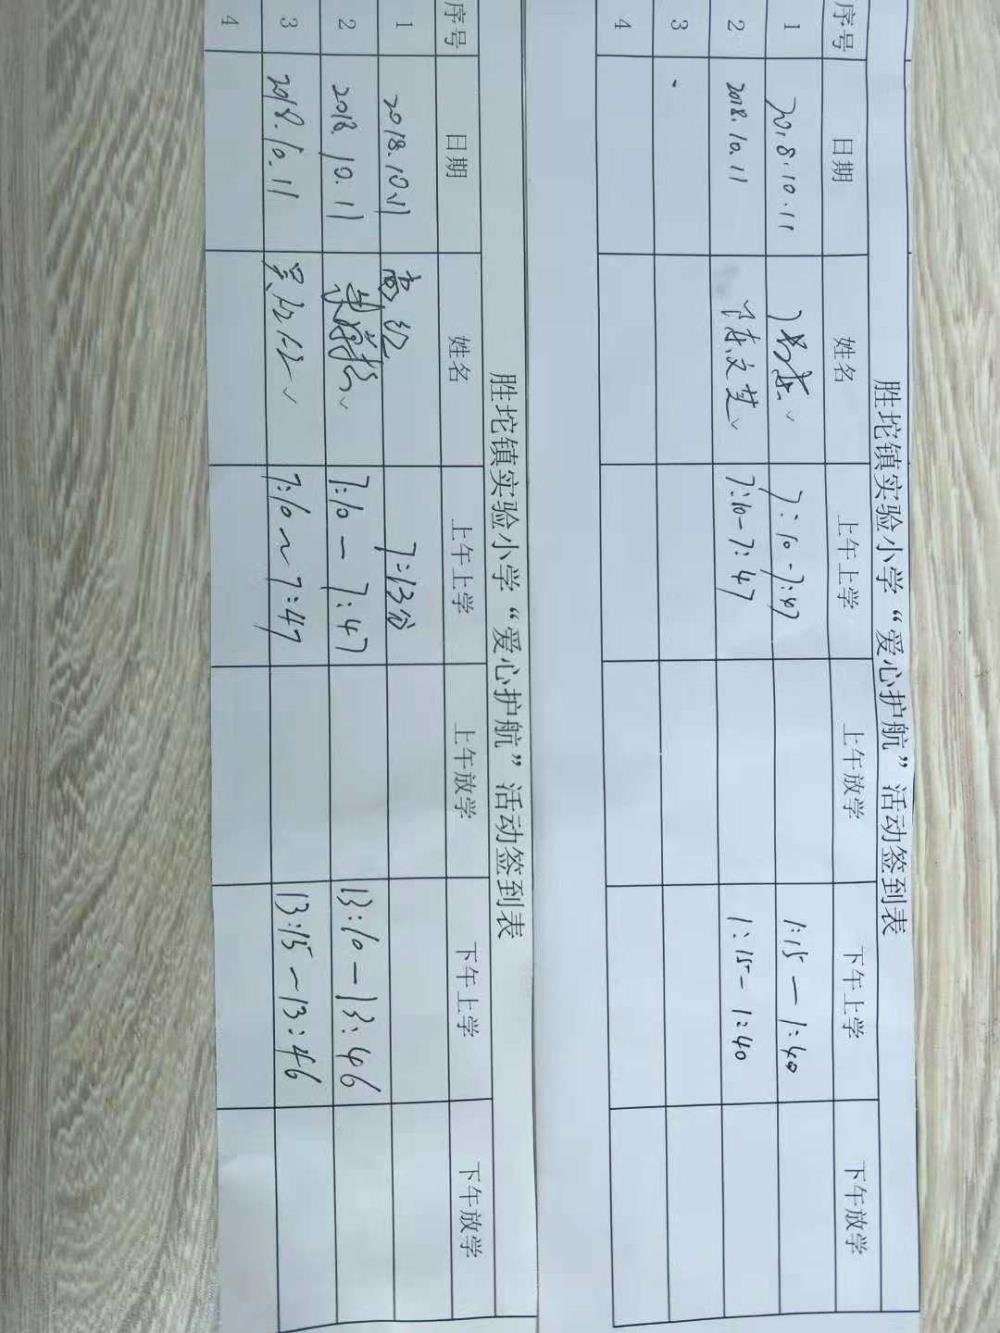 胜坨镇实验小学“爱心护航”活动签到表
序号 日期 姓名 上午上学 上午放学 下午上学 下午放学
1 2018.10.11 7:10-7:47 1:15-1:40
2 2018.10.11 陈文芝 7:10-7:47 1:15-1:40
3
4
胜坨镇实验小学“爱心护航”活动签到表
序号 日期 姓名 上午上学 上午放学 下午上学 下午放学
1 2018.10.11 7:13分
2 2018.10.11 7:10-7:47 13:10-13:46
3 2018.10.11 7:10~7:47 13:15-13:46
4